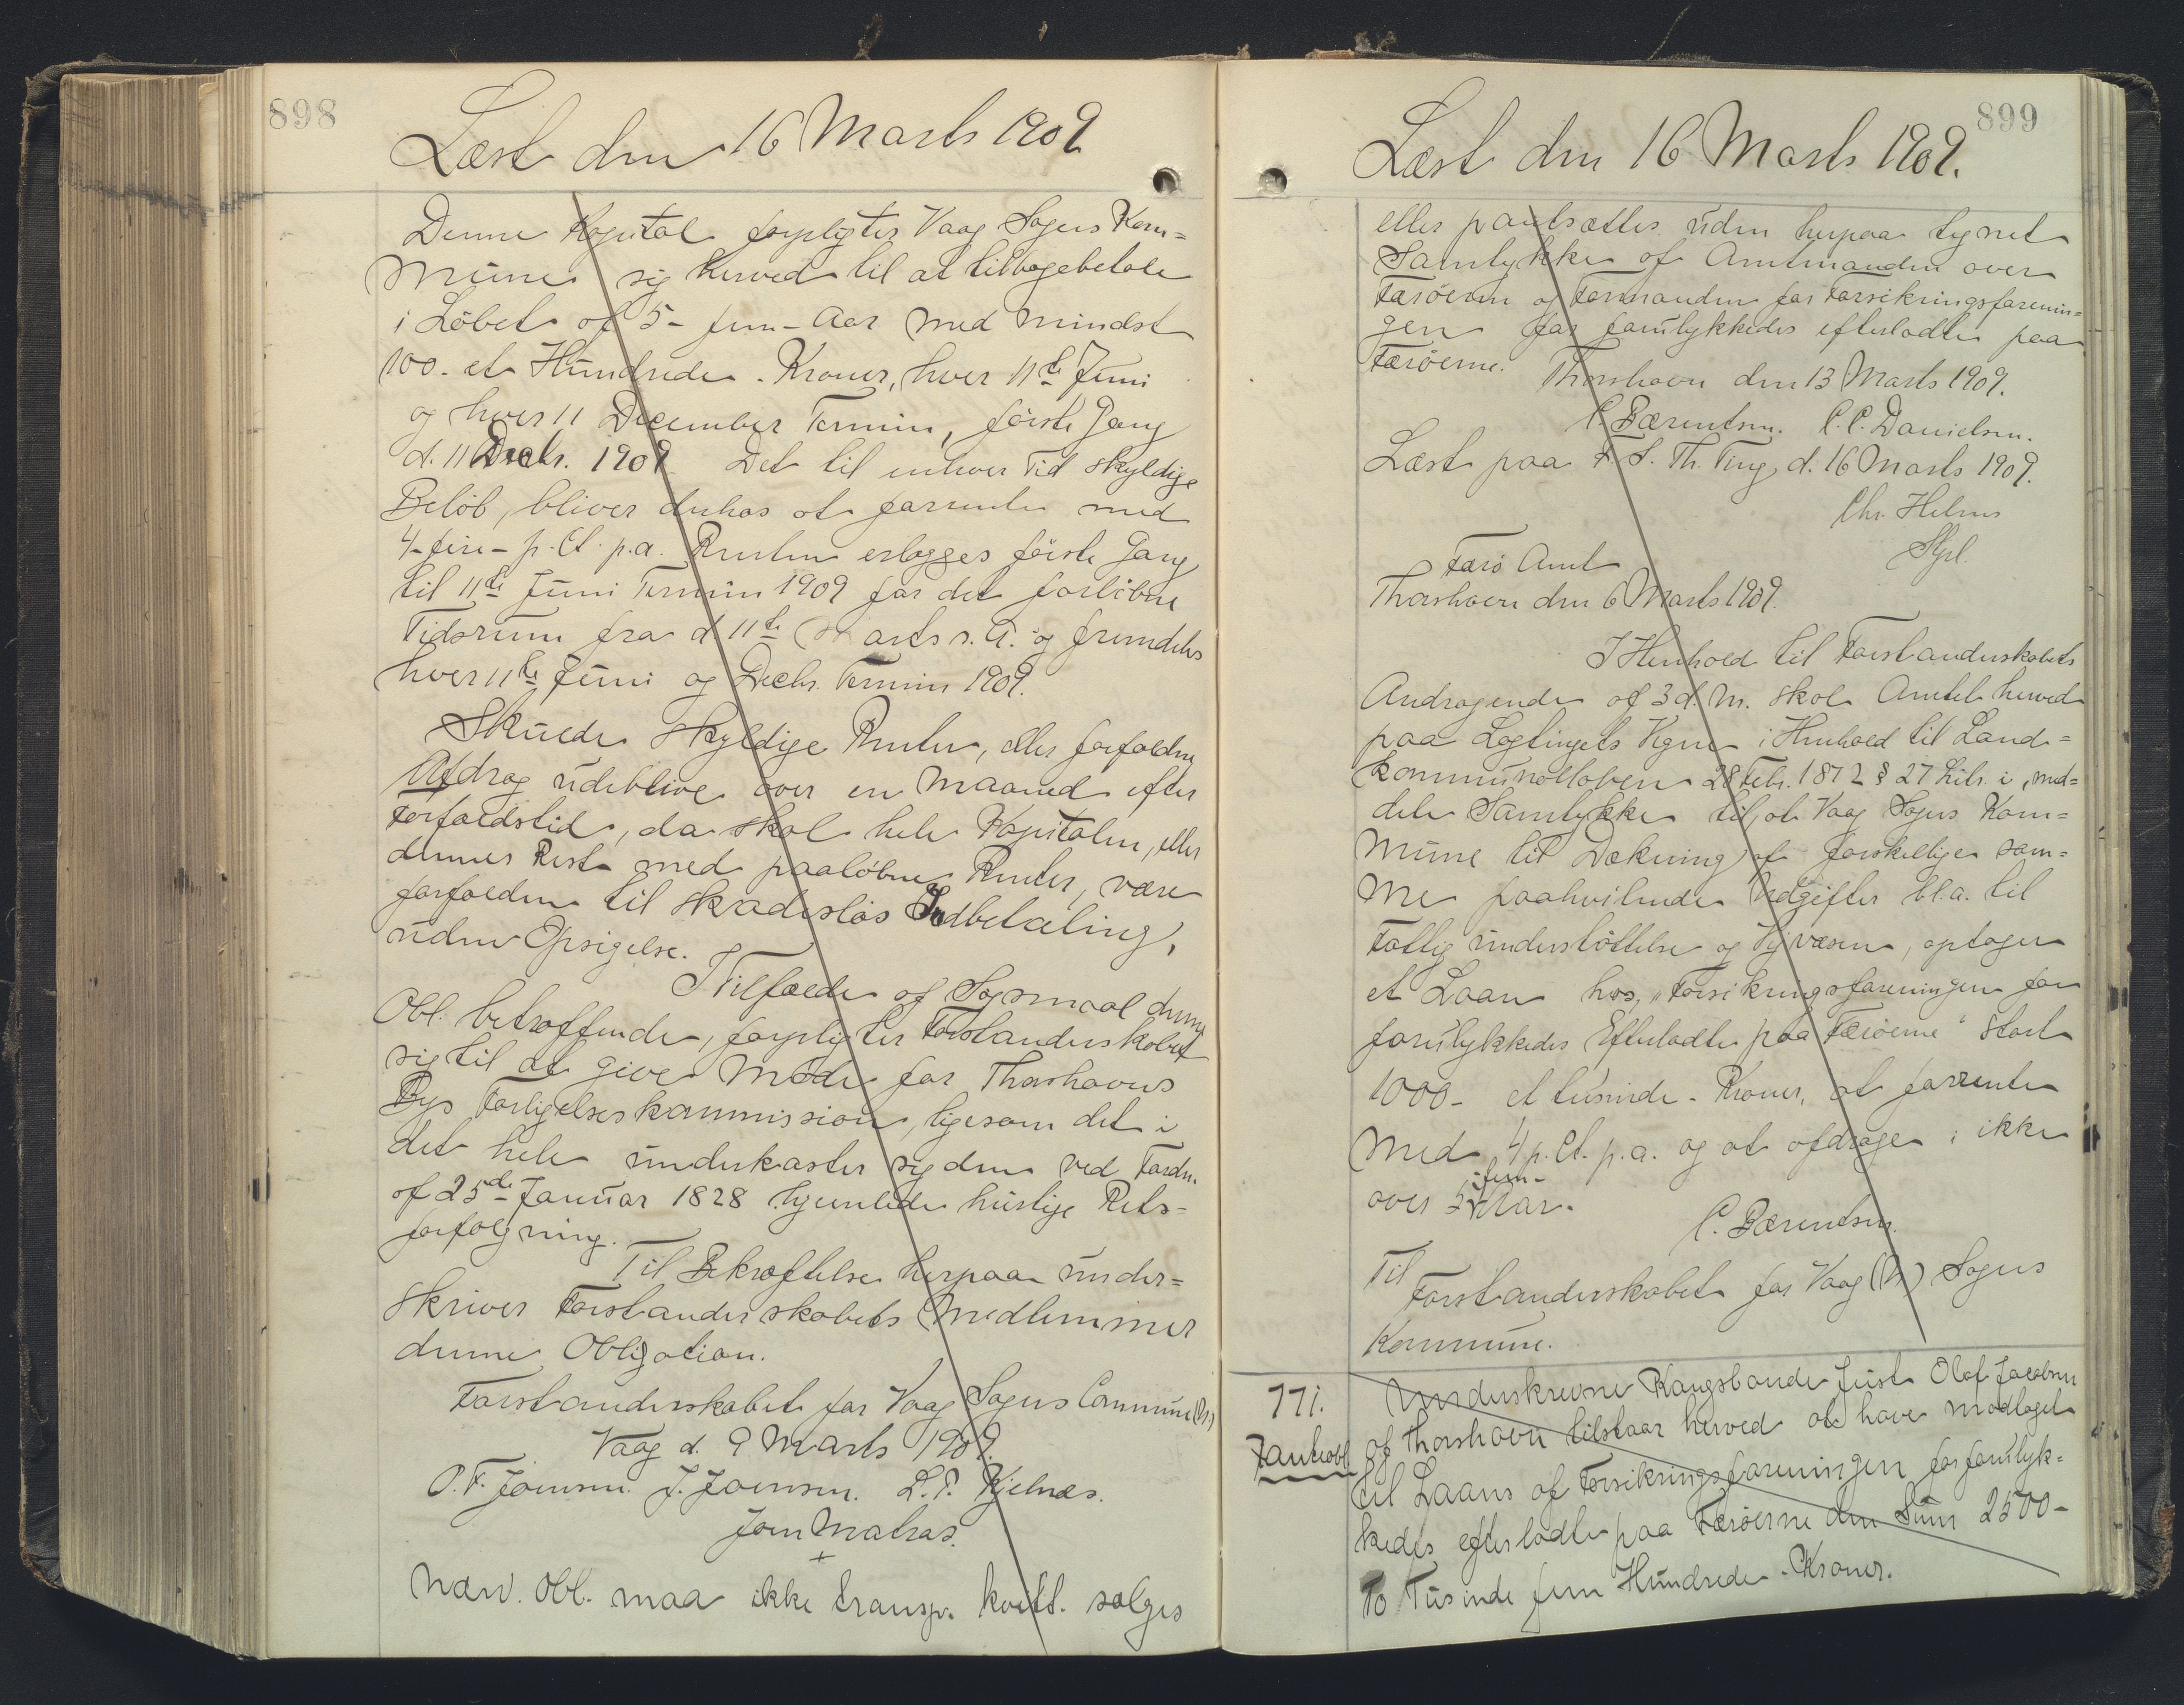 898
Læst den 16 Marts 1909
Denne Kapital forpligter Vaag Sogns Kom=
mune sig herved til at tilbagebetale
i Löbet af 5 - fem - Aar med mindst
100 - et Hundrede - Kroner, hver 11te Juni
og hver 11 December Termin, förste Gang
d. 11 Decbr. 1909. Det til enhver Tid skyldige
Belöb, bliver derhos at forrente med
4 - fire - p. Ct. p.a. Renten erlægges förste Gang
til 11te Juni Termin 1909 for det forlöbne
Tidsrum fra d. 11te Marts s. A. og fremdeles
hver 11te Juni og Decbr. Termin 1909.
Skulde skyldige Renter, eller forfaldne
Afdrag udeblive over en Maaned efter
Forfaldstid, da skal hele Kapitalen, eller
dennes Rest med paalöbne Renter, være
forfalden til skadeslös Indbetaling,
uden Opsigelse.
I Tilfælde af Sögsmaal denne
Obl. betræffende, forpligter Forstanderskabet
sig til at give Möde for Thorshavns
Bys Forligelseskommission, ligesom det i
det hele underkaster sig den ved Fordn.
af 25de Januar 1828 hjemlede hurtige Rets=
forfölgning.
Til Bekræftelse herpaa under=
skriver Forstanderskabets Medlemmer
denne Obligation.
Forstanderskabet for Vaag Sogns Commune (N.)
Vaag d. 9 Marts 1909.
O. F. Joensen. J. Joensen. L. P. Kjelnæs.
Joen Matras.
+
Nærv. Obl. maa ikke transp. kvitt. sælges
899
Læst den 16 Marts 1909.
eller pantsættes uden herpaa tegnet
Samtykke af Amtmanden over
Færöerne og Formanden for Forsikringsforenin=
gen for forulykkedes efterladte paa
Færöerne.
Thorshavn den 13 Marts 1909.
C. Bærentsen. C. C. Danielsen.
Læst paa F. S. Th. Ting, d. 16 Marts 1909.
Chr. Helms
Færö Amt
Thorshavn den 6 Marts 1909.
I Henhold til Forstanderskabets
Andragende af 3 d. M. skal Amtet herved
paa Lagtingets Vegne i Henhold til Land=
kommunalloven 28 Febr. 1872 § 27 Litr. i, med=
dele Samtykke til, at Vaag Sogns Kom=
mune til Dækning af forskellige sam=
me paahvilende Udgifter bl.a. til
Fattigunderstöttelse og Vejvæsen, optager
et Laan hos, "Forsikringsforeningen for
forulykkedes Efterladte paa Færöerne" Stort
1000 - et tusinde - Kroner, at forrente
med 4 p. Ct. p.a. og at afdrage i ikke
over 5 - fem - Aar.
C. Bærentsen.
Til
Forstanderskabet for Vaag (N.) Sogns
Kommune.
771.
Panteobl.
Underskrevne Kongsbonde Just Olof Jacobsen
af Thorshavn tilstaar herved at have modtaget
til Laans af Forsikringsforeningen for forulyk=
kedes efterladte paa Færöerne den Sum 2500 -
To Tusinde fem Hundrede - Kroner.